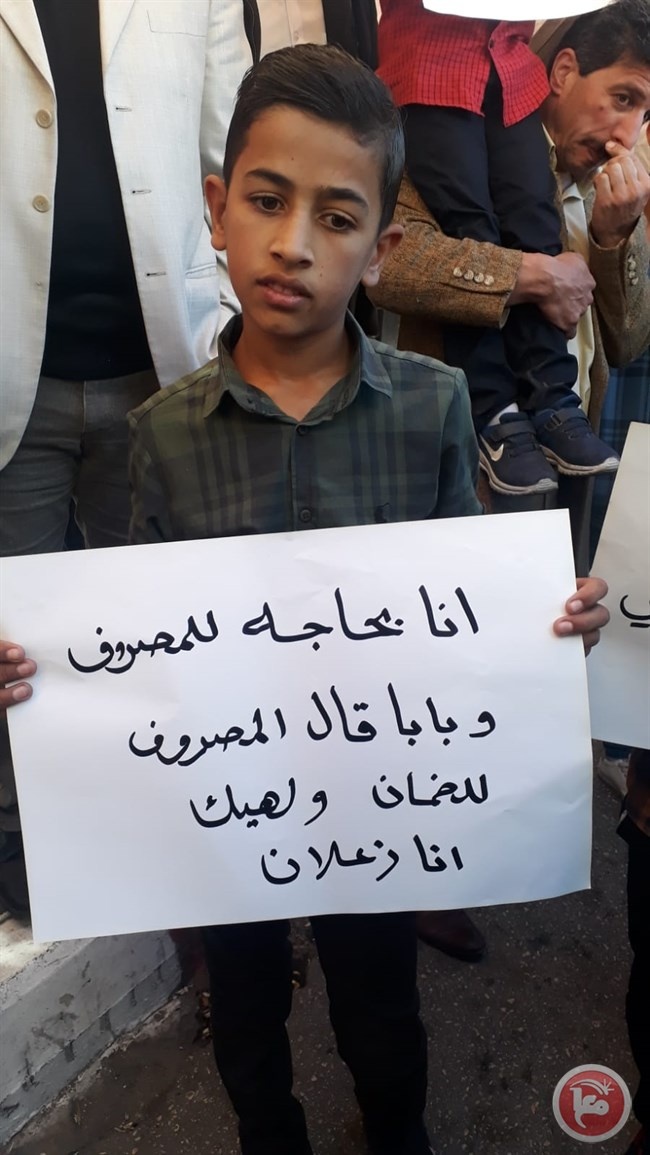 انا بحاجه للمصروف
وبابا قال المصروف
للضمان ولهيك
انا زعلان
معا